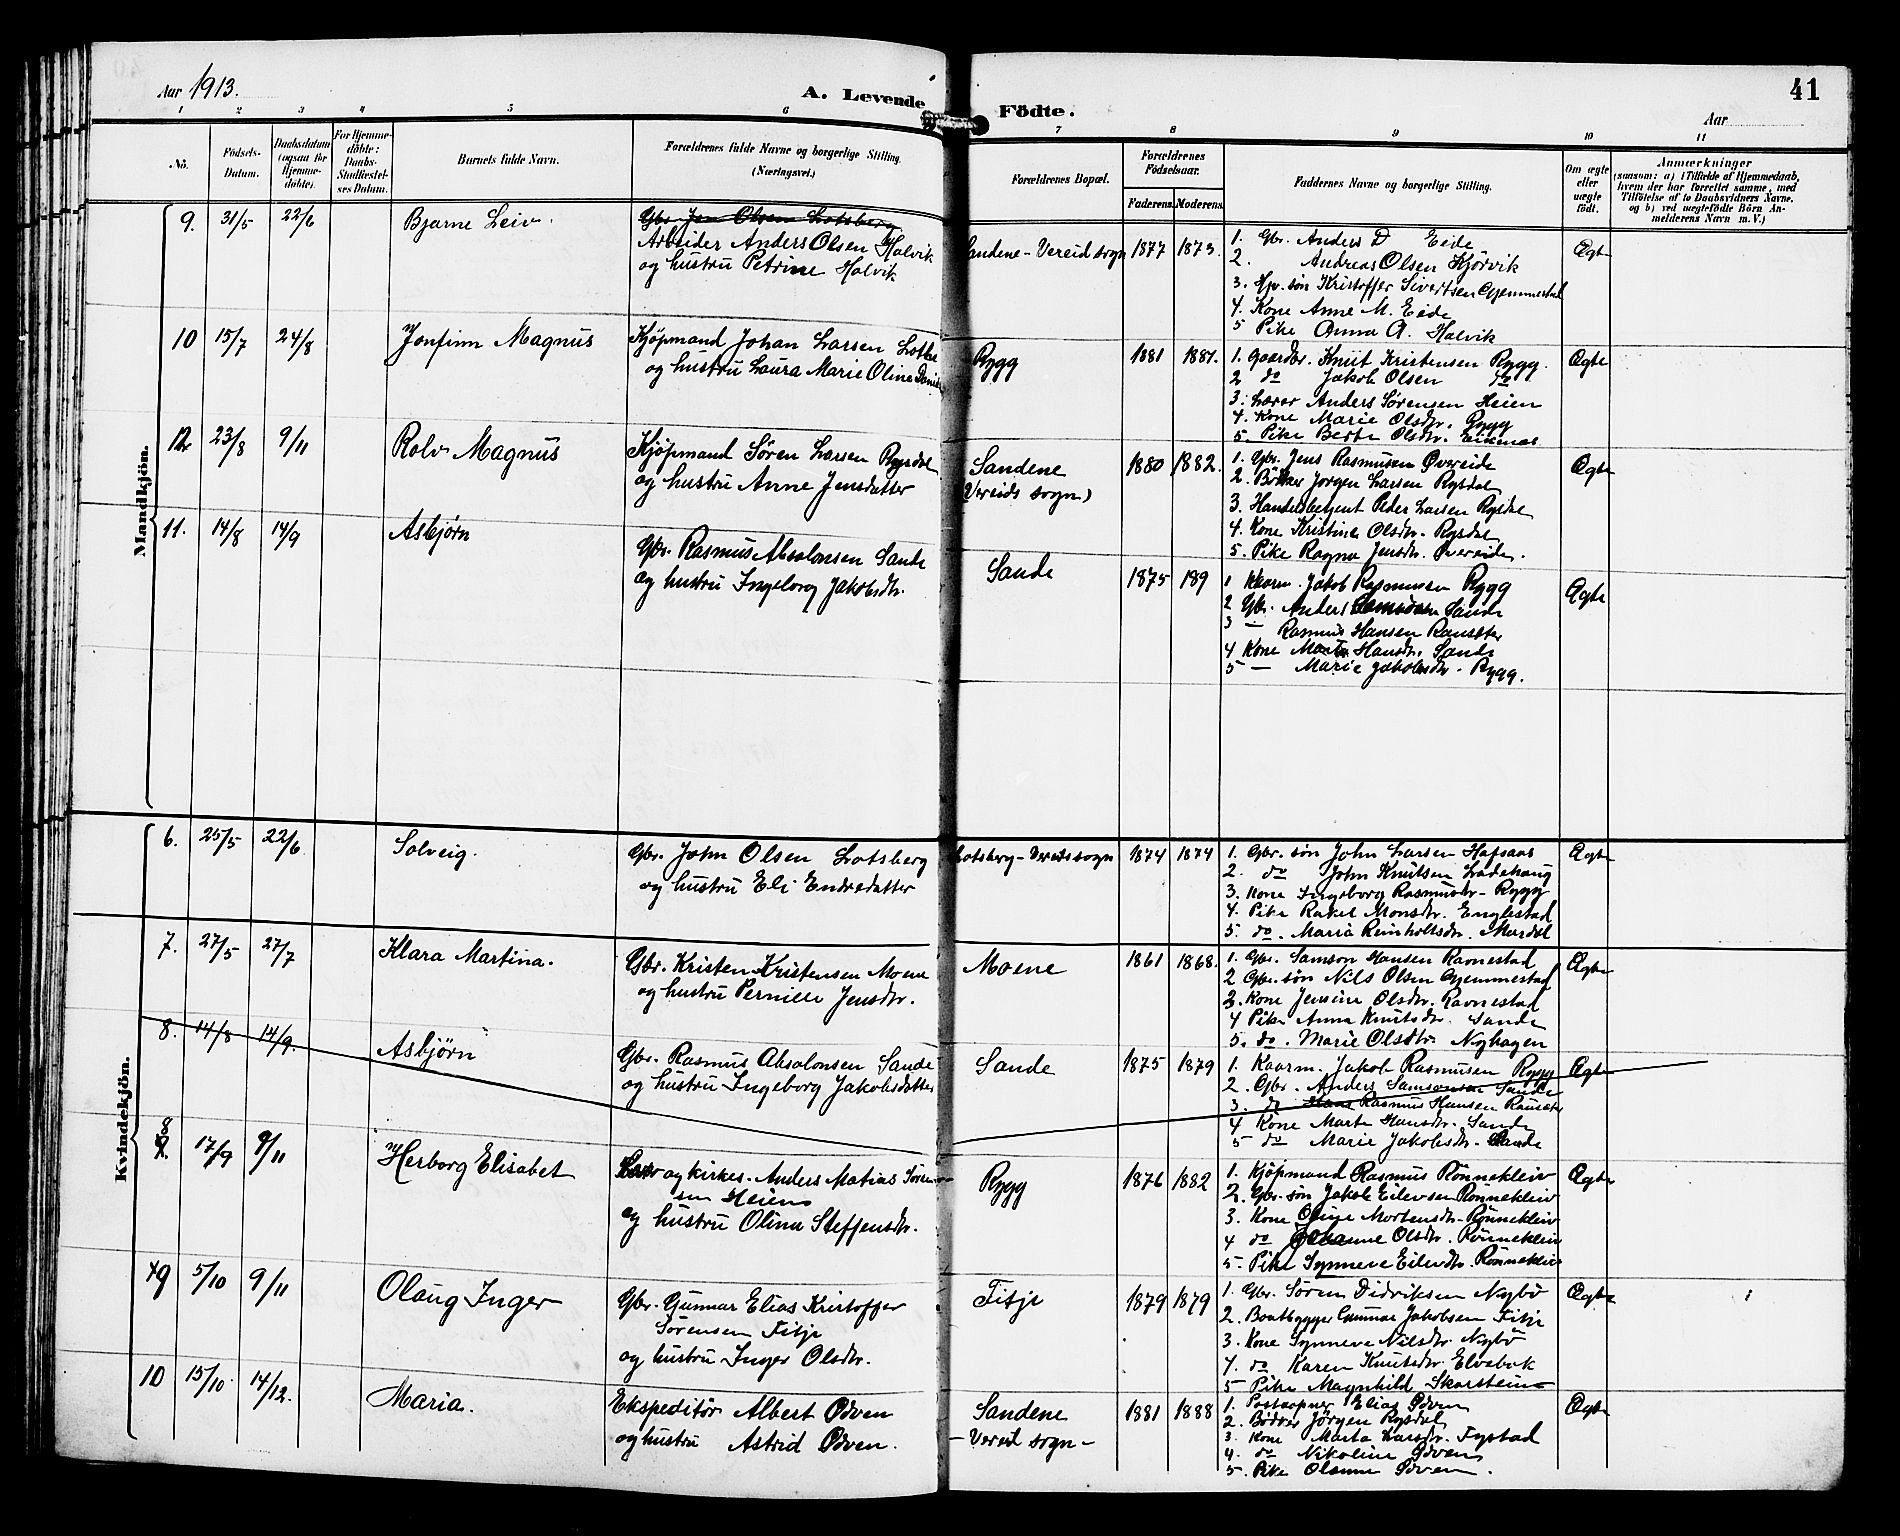 Aar 1913.
A. Levende Födte.
41
Aar
1 2 3 4 5 6 7 8 9 10 11
No.
Födsels-Datum.
Daabsdatum (ogsaa for Hjemme-döbte).
For Hjemme-döbte: Daabs-Stadfæstel-ses Datum.
Barnets fulde Navn.
Forældrenes fulde Navne og borgerlige Stilling. (Næringsvei.)
Forældrenes Bopæl.
Forældrenes Födselsaar.
Faderens. Moderens.
Faddernes Navne og borgerlige Stilling.
Om ægte eller uægte födt.
Anmærkninger
(saasom: a) i Tilfælde af Hjemmedaab, hvem der har forrettet samme, med Tilföielse af to Daabsvidners Navne, og b) ved uægtefödte Börn An-melderens Navn m. V.)
Mandkjön.
9. 31/5 22/6 Bjarne Leiv.
Gbr. Jon Olsen Lotsberg
Arbeider Anders Olsen Holvik
og hustru Petrine Holvik
Sandene - Vereid sogn 1877 1873.
1. Gbr. Anders D Eide
2. Andreas Olsen Kjørvik
3. Gbr. søn Kristoffer Sivertsen Gjemmestad
4. Kone Anne M. Eide
5 Pike Anna A. Holvik
Ægte
10 15/7 24/8 Jonfinn Magnus
Kjøpmand Johan Larsen
og hustru Laura Marie Oline
Rygg 1881 1881.
1. Gaardbr. Knut Kristensen Rygg.
2 do Jakob Olsen do
3. Lærer Anders Sørensen Heien
4. Kone Marie Olsdtr. Rygg
5. Pike Berte Olsdtr. Eikenæs
Ægte
12 23/8 9/11 Rolv Magnus
Kjøpmand Søren Larsen Rysdal
og hustru Anne Jensdatter
Sandene
(Vereids sogn) 1880 1882.
1. Gbr. Jens Rasmusen Øvereide
2. Bødker Jørgen Larsen Rysdal
3. Handelsbetjent Peder Larsen Rysdal
4. Kone Kristine Olsdtr. Rysdal
5. Pike Ragna Jensdtr. Øvereide.
Ægte
11. 14/8 14/9 Asbjørn
Gbr. Rasmus Absalonsen Sande
og hustru Ingeborg Jakobsdtr.
Sande 1875 189
1 Kaarm. Jakob Rasmussen Rygg
2 Gbr. Anders Samsonsen Sande
3 — Rasmus Hansen Ranseter
4 Kone Marte Hansdtr. Sande
5 — Marie Jakobsdtr. Rygg.
Ægte
Kvindekjön.
6. 25/5 22/6 Solveig.
Gbr. John Olsen Lotsberg
og hustru Eli Endredatter
Lotsberg - Vereidssogn 1874 1874
1. Gbr. søn John Larsen Hafsaas
2. do John Knutsen Ladehaug
3. Kone Ingeborg Rasmusdtr. Rygg
4. Pike Rakel Monsdtr. Englestad
5. do. Maria Reinholtsdtr. Mardal
Ægte
7. 27/5 27/7 Klara Martina.
Gbr. Kristen Kristensen Moene
og hustru Pernille Jensdtr.
Moene 1861 1868.
1. Gbr. Samson Hansen Ravnestad
2 Gbr. søn Nils Olsen Gjemmestad
3. Kone Jensine Olsdtr. Ravnestad
4 Pike Anna Knutsdtr. Sande
5. do. Marie Olsdtr. Nyhagen
Ægte
8. 14/8 14/9. Asbjørn
Gbr. Rasmus Absalonsen Sande
og hustru Ingeborg Jakobsdatter
Sande 1875 1879
1. Kaarm. Jakob Rasmusen Rygg
2. Gbr. Anders Samsonsen Sande
3. do Rasmus Hansen Ranseter
4 Kone Marte Hansdtr. Sande
5 do Marie Jakobsdtr. Sande
Ægte
8 17/9 9/11 Herborg Elisabet
Lærer og kirkes. Anders Matias Søren-
sen Heien
og hustru Olina Steffensdtr.
Rygg 1876 1882
1. Kjøpmand Rasmus Rønnekleiv
2. Gbr. søn Jakob Eilevsen Rønnekleiv
3. Kone Oline Mortensdtr. Rønnekleiv
4 do Johanne Olsdtr. Rønnekleiv
5. Pike Synneve Eilevdtr. Rønnekleiv
Ægte
9 5/10 9/11 Olaug Inger
Gbr. Gunnar Elias Kristoffer
Sørensen Fitje
og hustru Inger Olsdtr.
Fitje 1879 1879
1. Gbr. Søren Didriksen Nybö
2. Baatbygger Gunnar Jakobsen Fitje
3. Kone Synneve Nilsdtr. Nybö
4. do Karen Knutsdtr. Elvebak
5 Pike Magnhild Skarstein
Ægte
10 15/10 14/12. Maria.
Ekspeditør Albert Odven
og hustru Astrid Odven.
Sandene
- Vereid sogn - 1881 1888
1. Postaapner Elias Odven
2. Bødker Jörgen Rysdal
3. Kone Marta Larsdtr. Fystad
4. do Nikoline Odven
5. Pike Olanne Odven.
Ægte